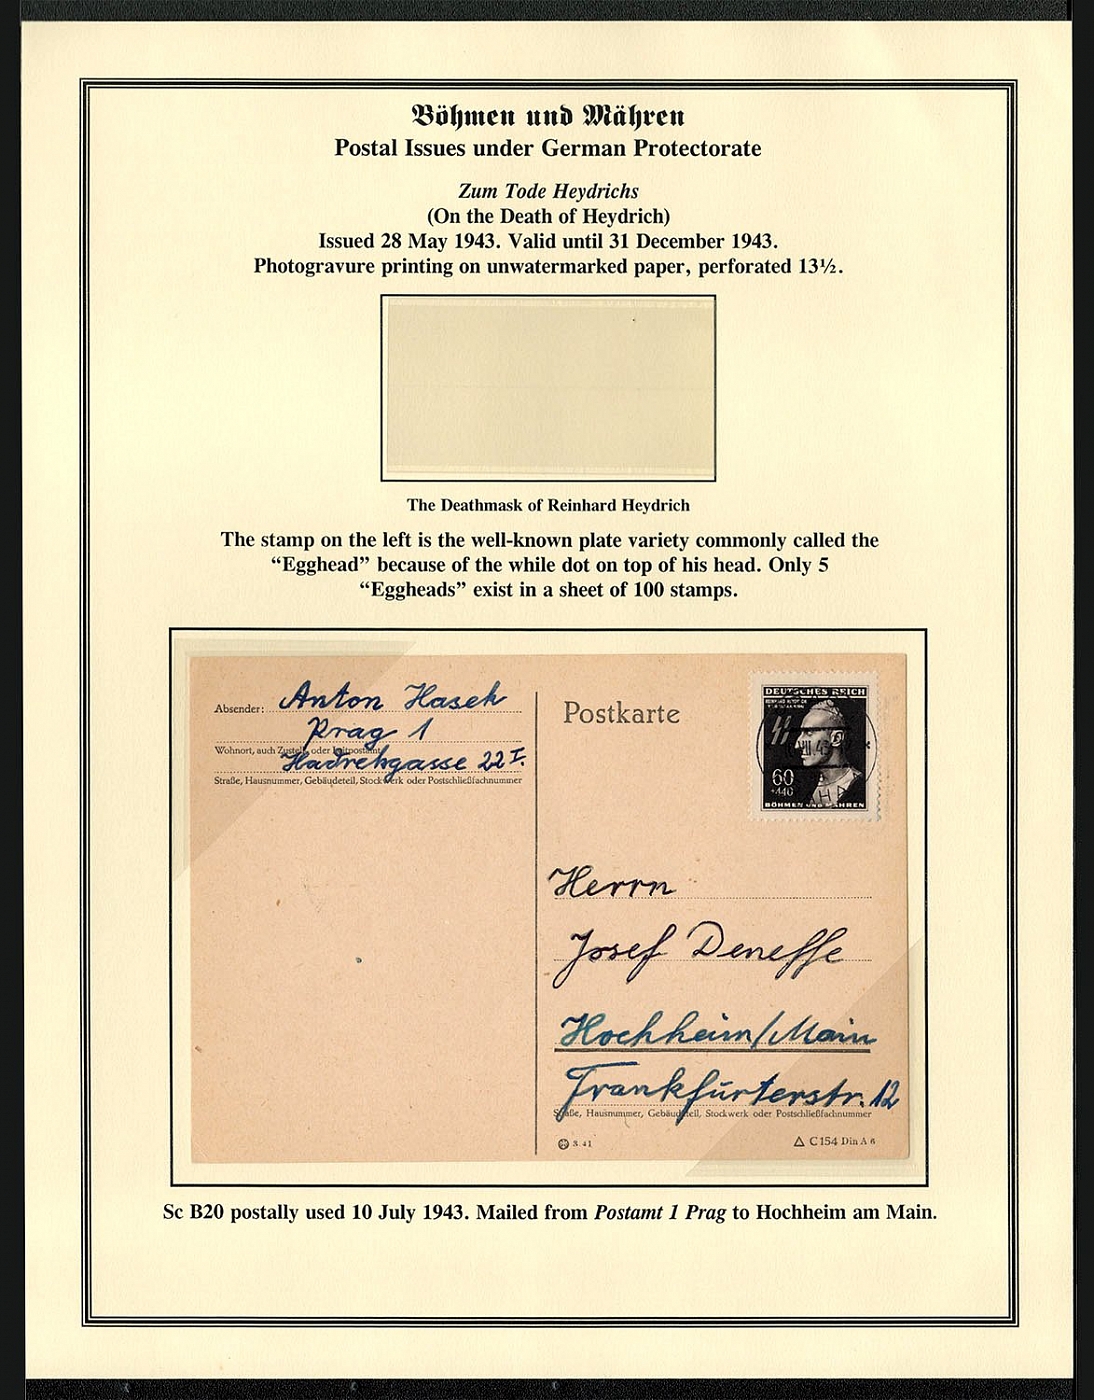 Böhmen und Mähren
Postal Issues under German Protectorate
Zum Tode Heydrichs
(On the Death of Heydrich)
Issued 28 May 1943. Valid until 31 December 1943.
Photogravure printing on unwatermarked paper, perforated 13½.
The Deathmask of Reinhard Heydrich
The stamp on the left is the well-known plate variety commonly called the
“Egghead” because of the while dot on top of his head. Only 5
“Eggheads” exist in a sheet of 100 stamps.
Absender: Anton Hasek
Prag 1
Wohnort, auch Zustell- oder Leitpostamt
22 I.
Straße, Hausnummer, Gebäudeteil, Stockwerk oder Postschließfachnummer
Postkarte
DEUTSCHES REICH
60
+440
BÖHMEN UND MÄHREN
Herrn
Josef Deneffe
Hochheim/Main
Frankfurterstr. 12
Straße, Hausnummer, Gebäudeteil, Stockwerk oder Postschließfachnummer
3 41
C 154 Din A 6
Sc B20 postally used 10 July 1943. Mailed from Postamt 1 Prag to Hochheim am Main.